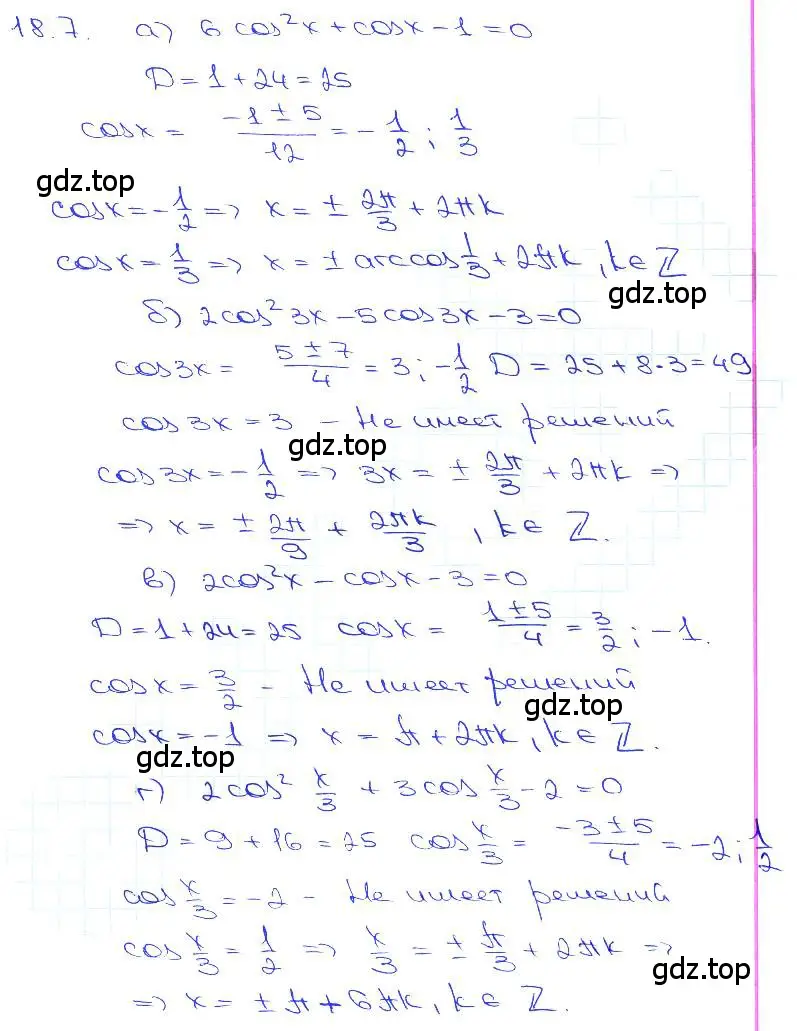 18.7. а) 6 cos²x + cosx - 1 = 0
D = 1 + 24 = 25
cosx = (-1 ± 5)/12 = -1/2 ; 1/3
gdz.top
cosx = -1/2 => x = ± 2π/3 + 2πk
cosx = 1/3 => x = ± arccos 1/3 + 2πk, k ∈ ℤ
gdz.top
б) 2cos² 3x - 5cos 3x - 3 = 0
cos3x = (5 ± 7)/4 = 3 ; -1/2 D = 25 + 8·3 = 49
cos 3x = 3 - Не имеет решений
gdz.top
cos 3x = -1/2 => 3x = ± 2π/3 + 2πk =>
=> x = ± 2π/9 + 2πk/3 , k ∈ ℤ.
в) 2cos²x - cosx - 3 = 0
D = 1 + 24 = 25 cosx = (1 ± 5)/4 = 3/2 ; -1.
cos x = 3/2 - Не имеет решений
gdz.top
cosx = -1 => x = π + 2πk, k ∈ ℤ.
gdz.top
г) 2cos² x/3 + 3cos x/3 - 2 = 0
D = 9 + 16 = 25 cos x/3 = (-3 ± 5)/4 = -2 ; 1/2
cos x/3 = -2 - Не имеет решений
cos x/3 = 1/2 => x/3 = ± π/3 + 2πk =>
gdz.top
=> x = ± π + 6πk, k ∈ ℤ.